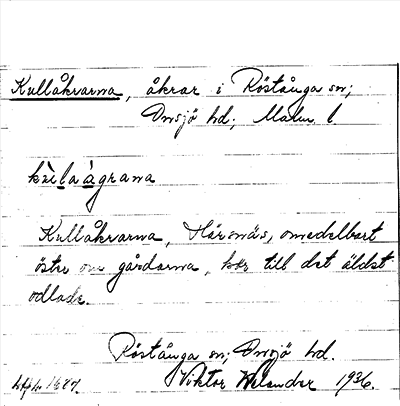 Kullåkrarna, åkrar i Röstånga sn;
Onsjö hd; Malm. l
Kullåkrarna, Härsnäs, omedelbart
öster om gårdarna, hör till det äldst
odlade.
Röstånga sn; Onsjö hd.
Viktor Welander 1936.